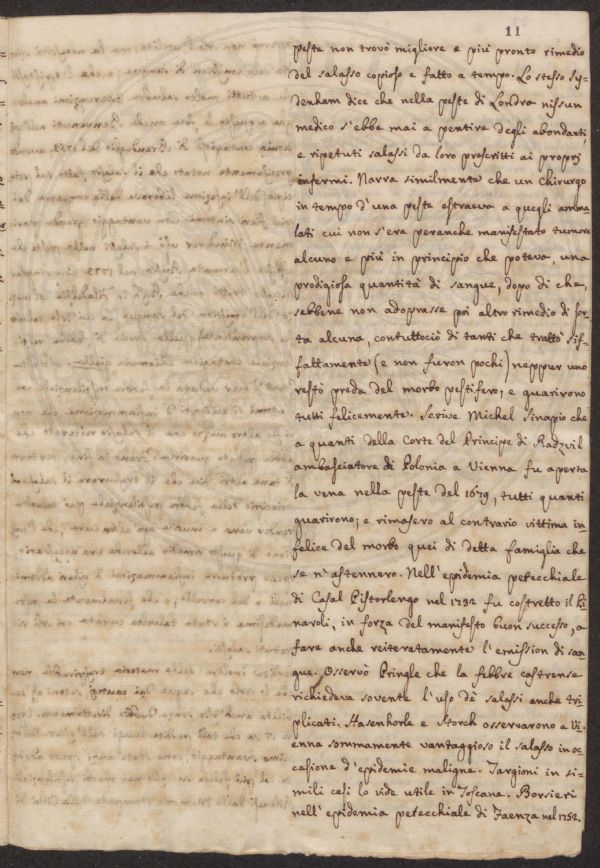 11
peste non trovò migliore e più pronto rimedio
del salasso copioso e fatto a tempo. Lo stesso Sy-
denham dice che nella peste di Londra nissun
medico s'ebbe mai a pentire degli abondanti,
e ripetuti salassi da loro proscritti ai proprj
infermi. Narra similmente che un Chirurgo
in tempo d'una peste estraeva a quegli amma
lati cui non s'era peranche manifestato tumore
alcuno e più in principio che poteva, una
prodigiosa quantità di sangue, dopo di che,
sebbene non adoprasse poi altro rimedio di sor-
ta alcuna, contuttociò di tanti che trattò sif-
fattamente (e non furon pochi) neppur uno
restò preda del morbo pestifero, e guarirono
tutti felicemente. Scrive Michel Sinapio che
a quanti della Corte del Principe di Radzvil
ambasciatore di Polonia a Vienna fu aperta
la vena nella peste del 1679, tutti quanti
guarirono; e rimasero al contrario vittima in
felice del morbo quei di detta famiglia che
se n'astennero. Nell'epidemia petecchiale
di Casal Pistorlengo nel 1732 fu costretto il Bi
naroli, in forza del manifesto buon successo, a
fare anche reiteratamente l'emission di san-
gue. Osservò Pringle che la febbre castrense
richiedeva sovente l'uso dè salassi anche tri
plicati. Hasenhorle e Storck osservarono a Vi-
enna sommamente vantaggioso il salasso in oc
casione d'epidemie maligne. Targioni in si-
mili casi lo vide utile in Toscana. Borsieri
nell'epidemia petecchiale di Faenza nel 1752.